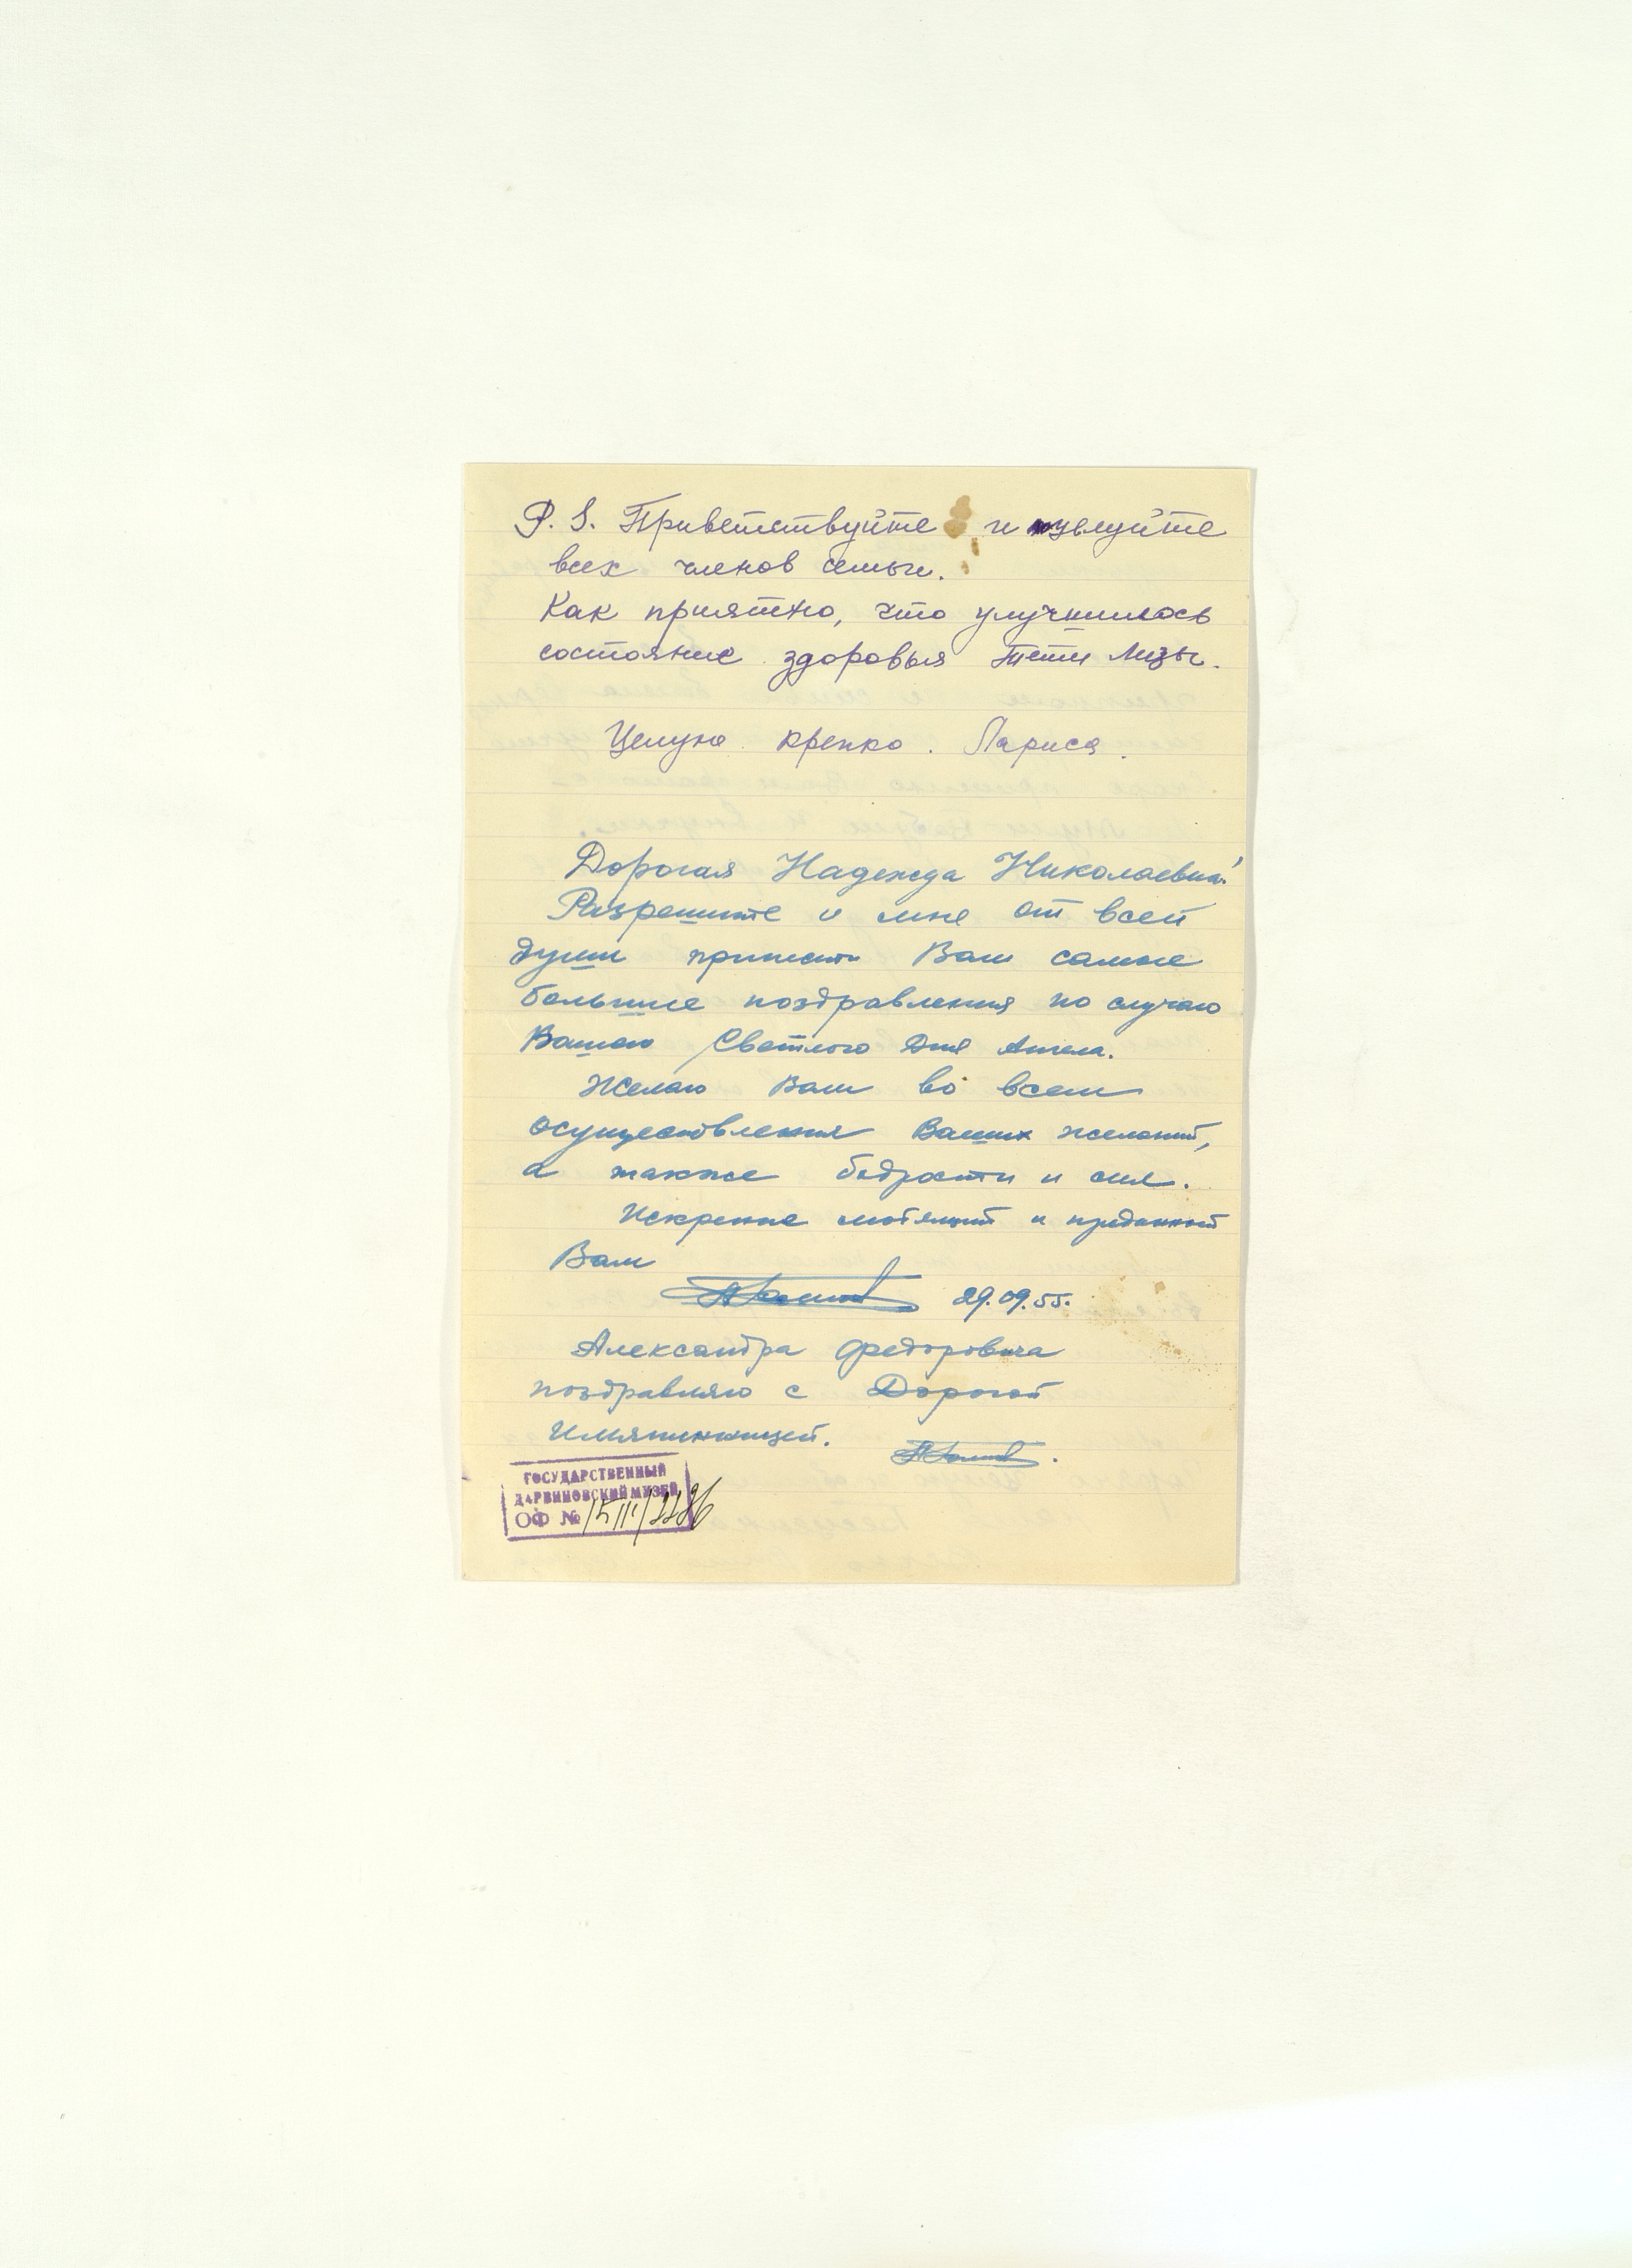 P. S. Приветствуйте и целуйте
всех членов семьи.
Как приятно, что улучшилось
состояние здоровья тети Лизы.
Целую крепко. Лариса.
Дорогая Надежда Николаевна!
Разрешите и мне от всей
души принести Вам самые
большие поздравления по случаю
Вашего Светлого Дня Ангела.
Желаю Вам во всем
осуществления Ваших желаний,
а также бодрости и сил.
Искренне любящий и преданный
Вам
29.09.55.
Александра Федоровича
поздравляю с Дорогой
Имянинницей.
ГОСУДАРСТВЕННЫЙ
ДАРВИНОВСКИЙ МУЗЕЙ
ОФ №